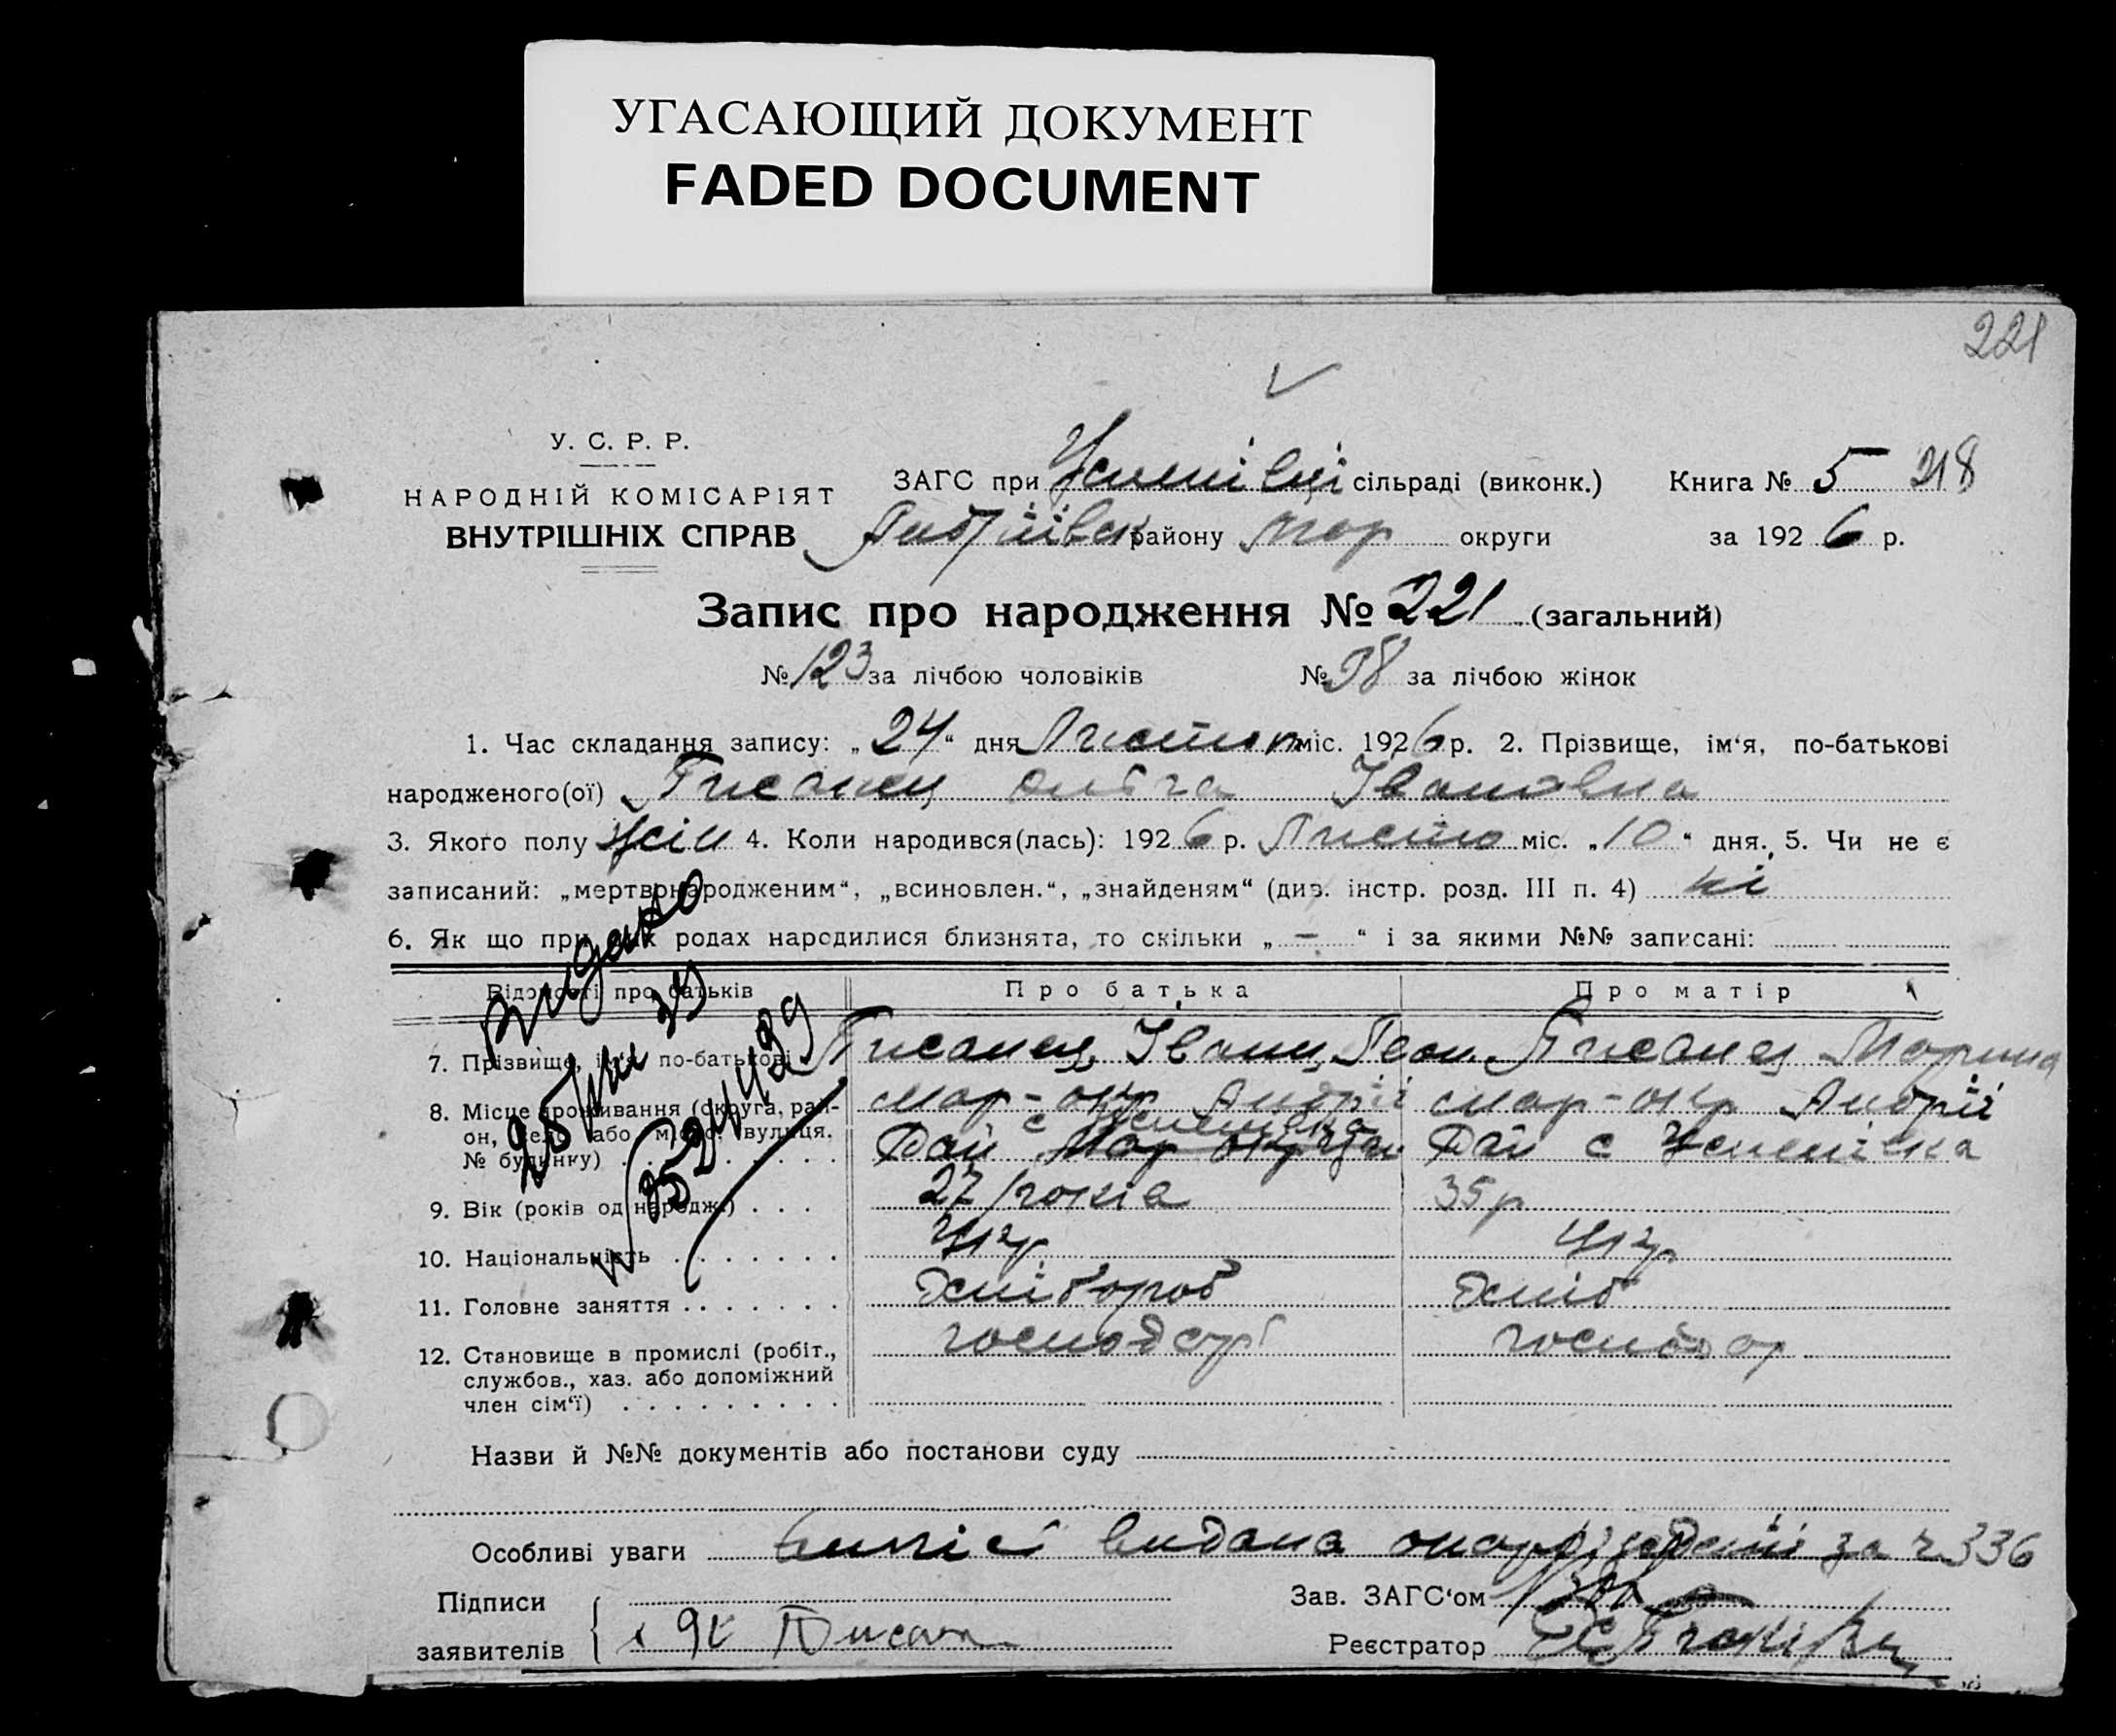 УГАСАЮЩИЙ ДОКУМЕНТ
FADED DOCUMENT
221
У. С. Р. Р.
НАРОДНІЙ КОМІСАРІЯТ
ВНУТРІШНІХ СПРАВ
ЗАГС при сільраді (виконк.) Книга № 5 218
району Мар округи за 1926 р.
Запис про народження № 221 (загальний)
№ 123 за лічбою чоловіків № 98 за лічбою жінок
1. Час складання запису: „24“ дня Листоп міс. 1926 р. 2. Прізвище, ім‘я, по-батькові
народженого(ої) Писанец Ольга Івановна
3. Якого полу жін 4. Коли народився(лась): 1926 р. Листо міс. „10“ дня. 5. Чи не є
записаний: „мертвонародженим“, „всиновлен.“, „знайденям“ (див. інстр. розд. III п. 4) ні
6. Як що при родах народилися близнята, то скільки „ – “ і за якими №№ записані:
Відомості про батьків Про батька Про матір
7. Прізвище, ім‘я, по-батькові Писанец Іван Писанец Марина
8. Місце проживання (округа, рай- Мар-окр Андрії Мар-окр Андрії
он, село або місто, вулиця. Рай с Успенівка Рай с Успенівка
№ будинку)
9. Вік (років од народж.) 27 років 35 р
10. Національність Укр Укр
11. Головне заняття Хлібороб Хліб
12. Становище в промислі (робіт., господар господар
службов., хаз. або допоміжний
член сім‘ї)
Видано
Назви й №№ документів або постанови суду
Особливі уваги видана за № 336
Підписи Зав. ЗАГС‘ом
заявителів Писан Реєстратор